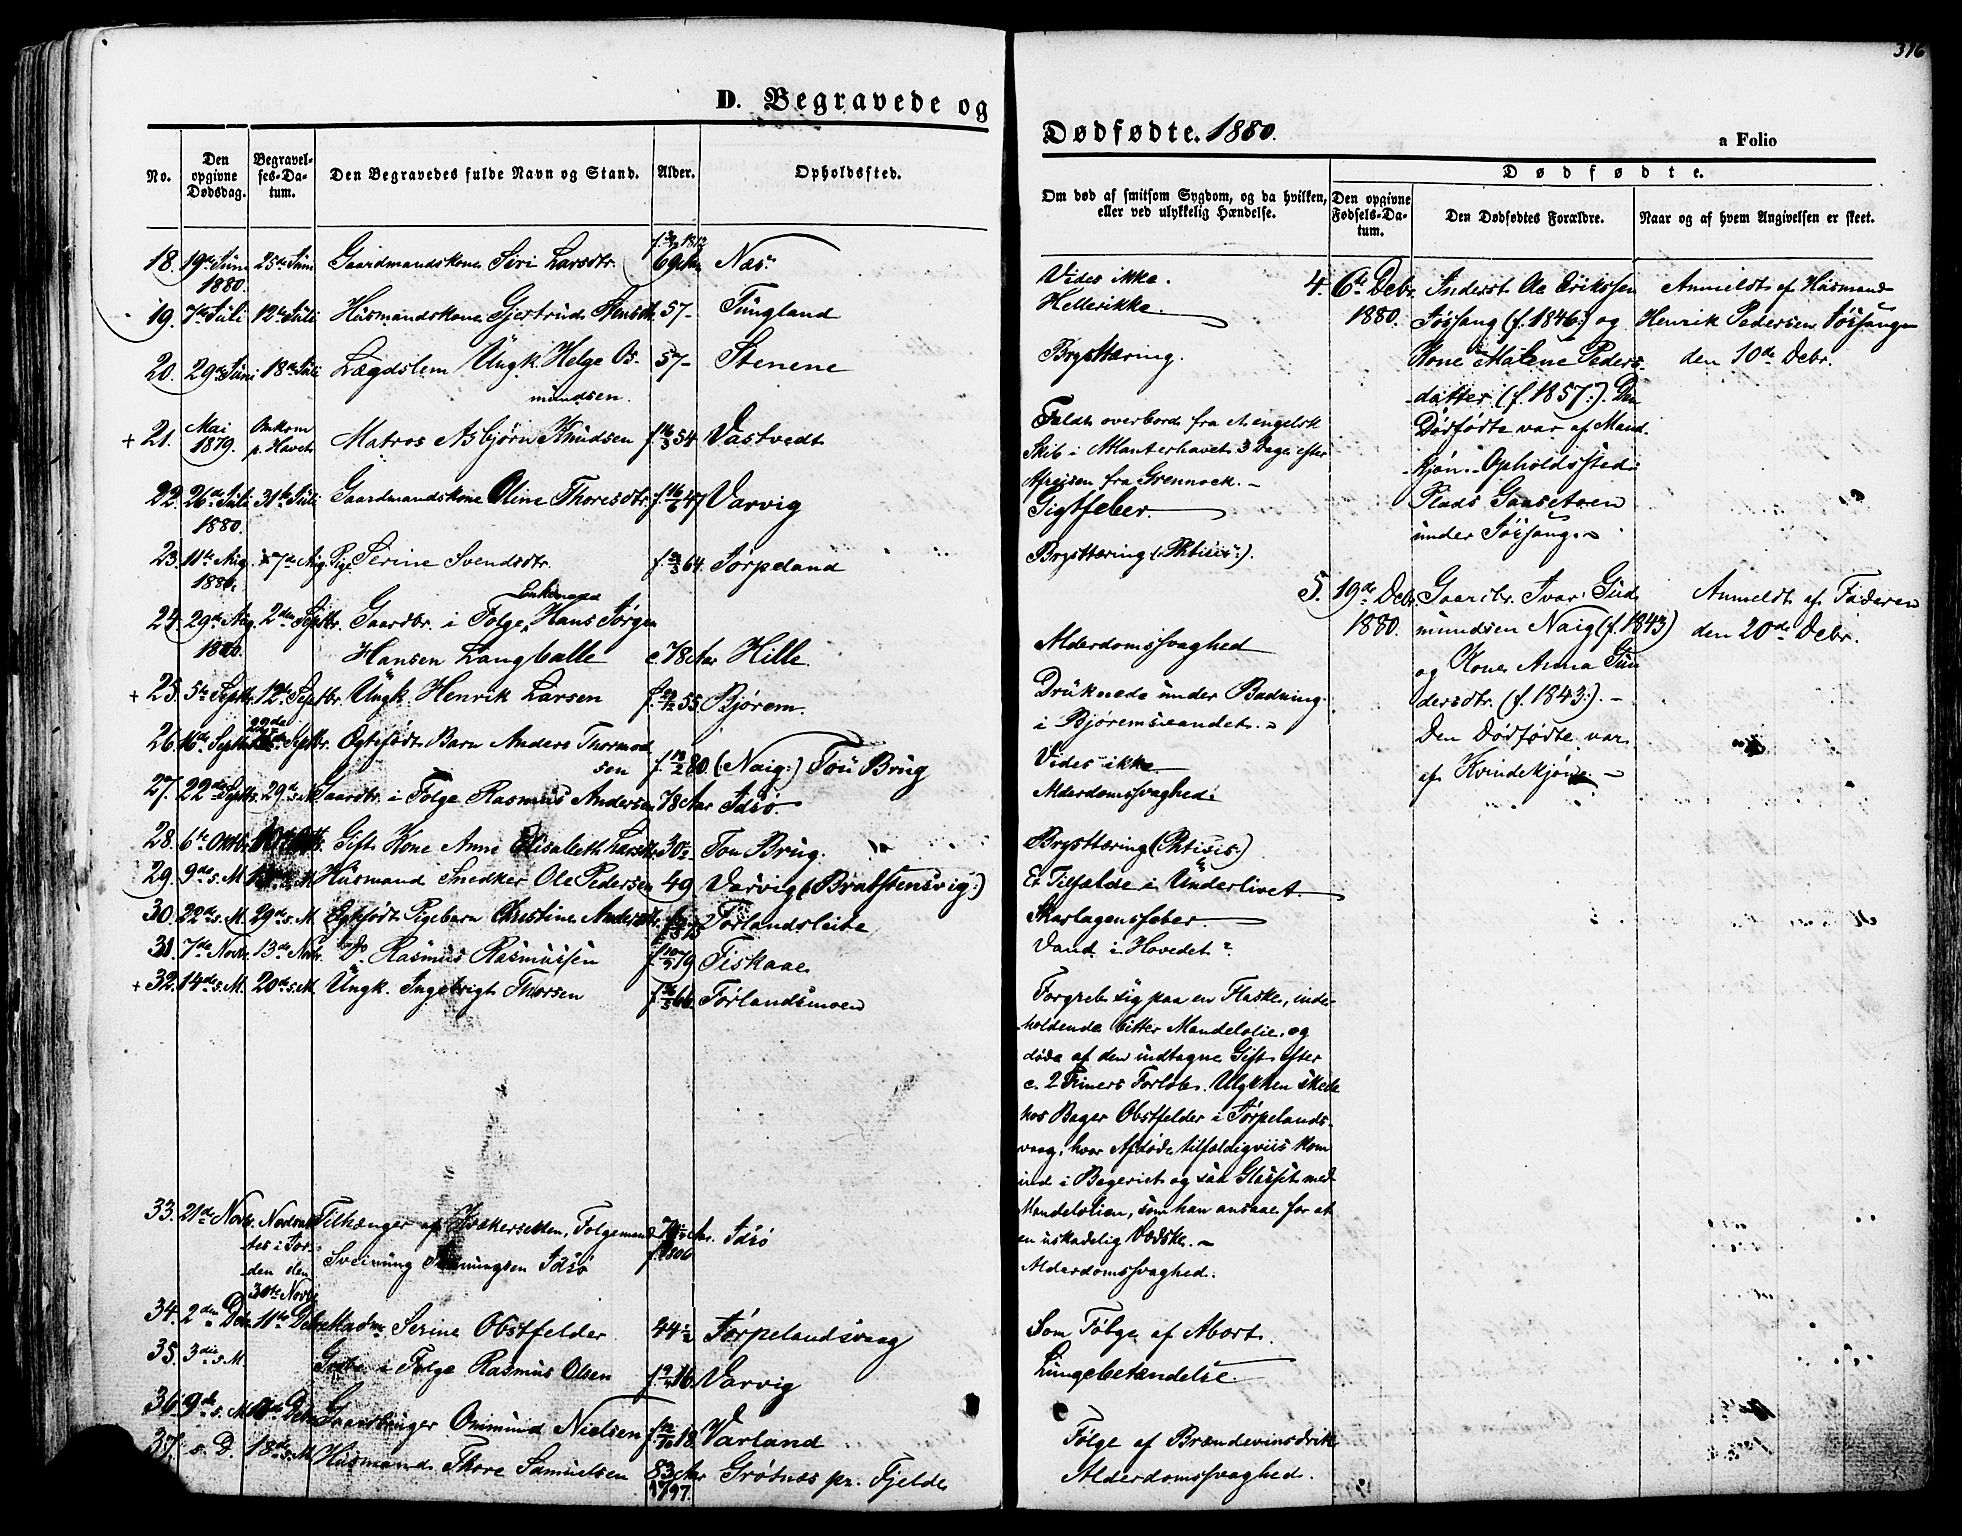 376
D. Begravede og
Dødfødte. 1880.
a Folio
No.
Den opgivne Dødsdag.
Begravelses-Datum.
Den Begravedes fulde Navn og Stand.
Alder.
Opholdssted.
Om død af smitsom Sygdom, og da hvilken,
eller ved ulykkelig Hændelse.
Dødfødte.
Den opgivne Fødsels-Datum.
Den Dødfødtes Forældre.
Naar og af hvem Angivelsen er skeet.
18. 19de Juni 1880. 25de Juni Gaardmandskone Siri Larsdtr. Næs.
Vides ikke.
19. 7de Juli 12te Juli Husmandskone Gjertrud 57- Tungland
Hellerikke.
20. 29de Juni 18de Juli Lægdslem Ungk. Helge Os-
mundsen. 57- Stenene
Brysttæring.
+ 21. Mai 1879. Omkom p. Havet Matros Asbjørn Knudsen f. 16/3 54 Vastvedt
Faldt overbord fra et engelsk
Skib i Atlanterhavet 3 Dage efter
Afreisen fra Grennock. -
22. 26de Juli 1880. 31te Juli Gaardmandskone Oline Thoresdtr. f. 16/6 47 Varvig
Gigtfeber.
23. 11te Aug. 1880. 7de Aug. Pige Serine Svendsdtr. 64. Jørpeland
Brysttæring (Phtisis:).
24. 29de Aug. 1880. 2den Septbr. Gaardbr. i Følge, Enkemand Hans Jørgen
Hansen Langballe c. 78 Aar Hille
Alderdomssvaghed
+ 25. 5te Septbr. 12te Septbr. Ungk. Henrik Larsen 55. Bjørem.
Druknede under Badning
i Bjøremsvandet. -
26. 16de Septbr. Septbr. Ægtefødt Barn Anders Thormod
sen 80. (Naig:) Tou Brug
Vides ikke
27. 22de Septbr. 29de s. M. Gaardbr. i Følge Rasmus Andersen 78 Aar Idsø.
Alderdomssvaghed.
28. 6te Oktbr. Gift Kone Anne Elisabeth 30 Tou Brug.
Brysttæring (Phtisis:)
29. 9de s. M. Husmand Snedker Ole Pedersen 49 Varvig (Bratstensvig:)
Et Tilfælde i Underlivet.
30. 22de s. M. 29de s. M. Ægtefødt Pigebarn Christine 75 Førlandsleite
Skarlagensfeber.
31. 7de Novbr. 13de Novbr. Do. Rasmus Rasmussen 79 Fiskaae
Vand i Hovedet?
+ 32. 14de s. M. 20de s. M. Ungk. Ingebrigt Thorsen 66. Førlandsmoen
Forgreb sig paa en Flaske, inde-
holdende bitter Mandelolie, og
døde af den indtagne Gift efter
c. 2 Timers Forløb. Ulykken skede
hos Bager Obstfelder i Jørpelands-
vaag, hvor Afdøde tilfældigviis kom
ind i Bageriet og saa Glasset med
Mandelolien, som han ansaae for at
en uskadelig Vædske. -
33. 21de Novbr. Nedsat-
tes i Jor-
den den
30te Novbr. Tilhænger af Kvækersekten, Følgemand
Sveinung Sveinungsen Idsø f. 1806 Idsø
Alderdomssvaghed.
34. 2den Debr. 11te Debr. Madm. Serine Obstfelder 44 Jørpelandsvaag
Som Følge af Abort.
35. 3die s. M. Grdbr. i Følge Rasmus Olsen 16. Varvig
Lungebetændelse.
36. 9de s. M. Debr. Gaardbruger Ommund Nielsen 18. Varland
Følge af Brændevinsdrik
37. s. D. 18de s. M. Husmand Thore Samuelsen 83 Aar 1797. Grøtnæs pr. Fjelde
Alderdomssvaghed.
4. 6te Debr. 1880.
Inderst Ole Eriksen
Jøssang (f. 1846:) og
Kone Malene Peders-
datter (f. 1857:). Den
Dødfødte var af Mand-
kjøn. Opholdssted:
Plads Gaasetoen
under Jøssang. -
Anmeldt af Husmand
Henrik Pedersen Jøssang
den 10de Debr.
5. 19de Debr. 1880.
Gaardbr. Ivar Gud-
mundsen Naig (f. 1843)
og Kone Anna Gun
dersdtr. (f. 1843:). -
Den Dødfødte var
af Kvindekjøn. -
Anmeldt af Faderen
den 20de Debr.